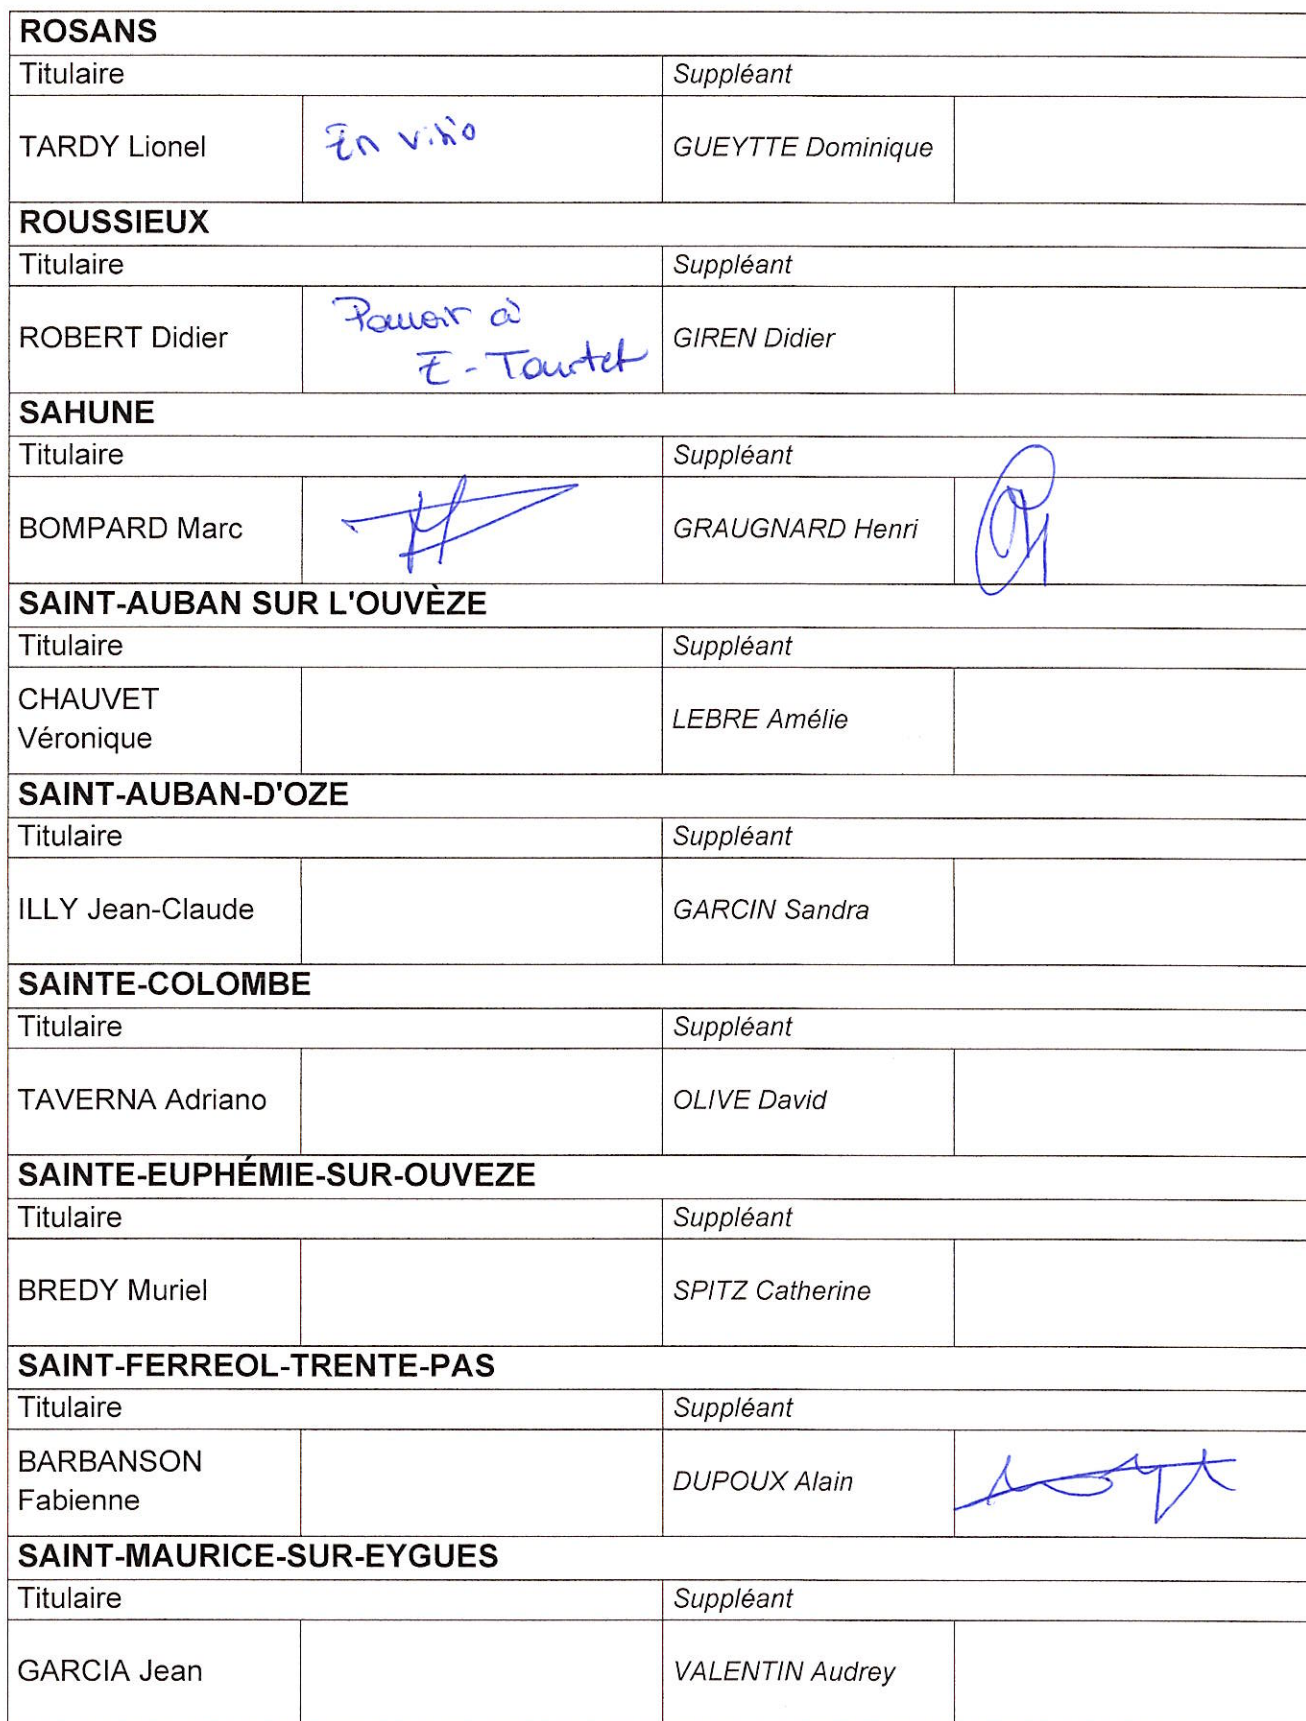 ROSANS
Titulaire Suppléant
TARDY Lionel En visio GUEYTTE Dominique
ROUSSIEUX
Titulaire Suppléant
ROBERT Didier Pouvoir à E-Tourtet GIREN Didier
SAHUNE
Titulaire Suppléant
BOMPARD Marc GRAUGNARD Henri
SAINT-AUBAN SUR L'OUVÈZE
Titulaire Suppléant
CHAUVET
Véronique LEBRE Amélie
SAINT-AUBAN-D'OZE
Titulaire Suppléant
ILLY Jean-Claude GARCIN Sandra
SAINTE-COLOMBE
Titulaire Suppléant
TAVERNA Adriano OLIVE David
SAINTE-EUPHÉMIE-SUR-OUVEZE
Titulaire Suppléant
BREDY Muriel SPITZ Catherine
SAINT-FERREOL-TRENTE-PAS
Titulaire Suppléant
BARBANSON
Fabienne DUPOUX Alain
SAINT-MAURICE-SUR-EYGUES
Titulaire Suppléant
GARCIA Jean VALENTIN Audrey